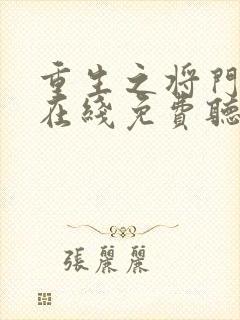 重生之将門
在綫免費聽
張麗麗